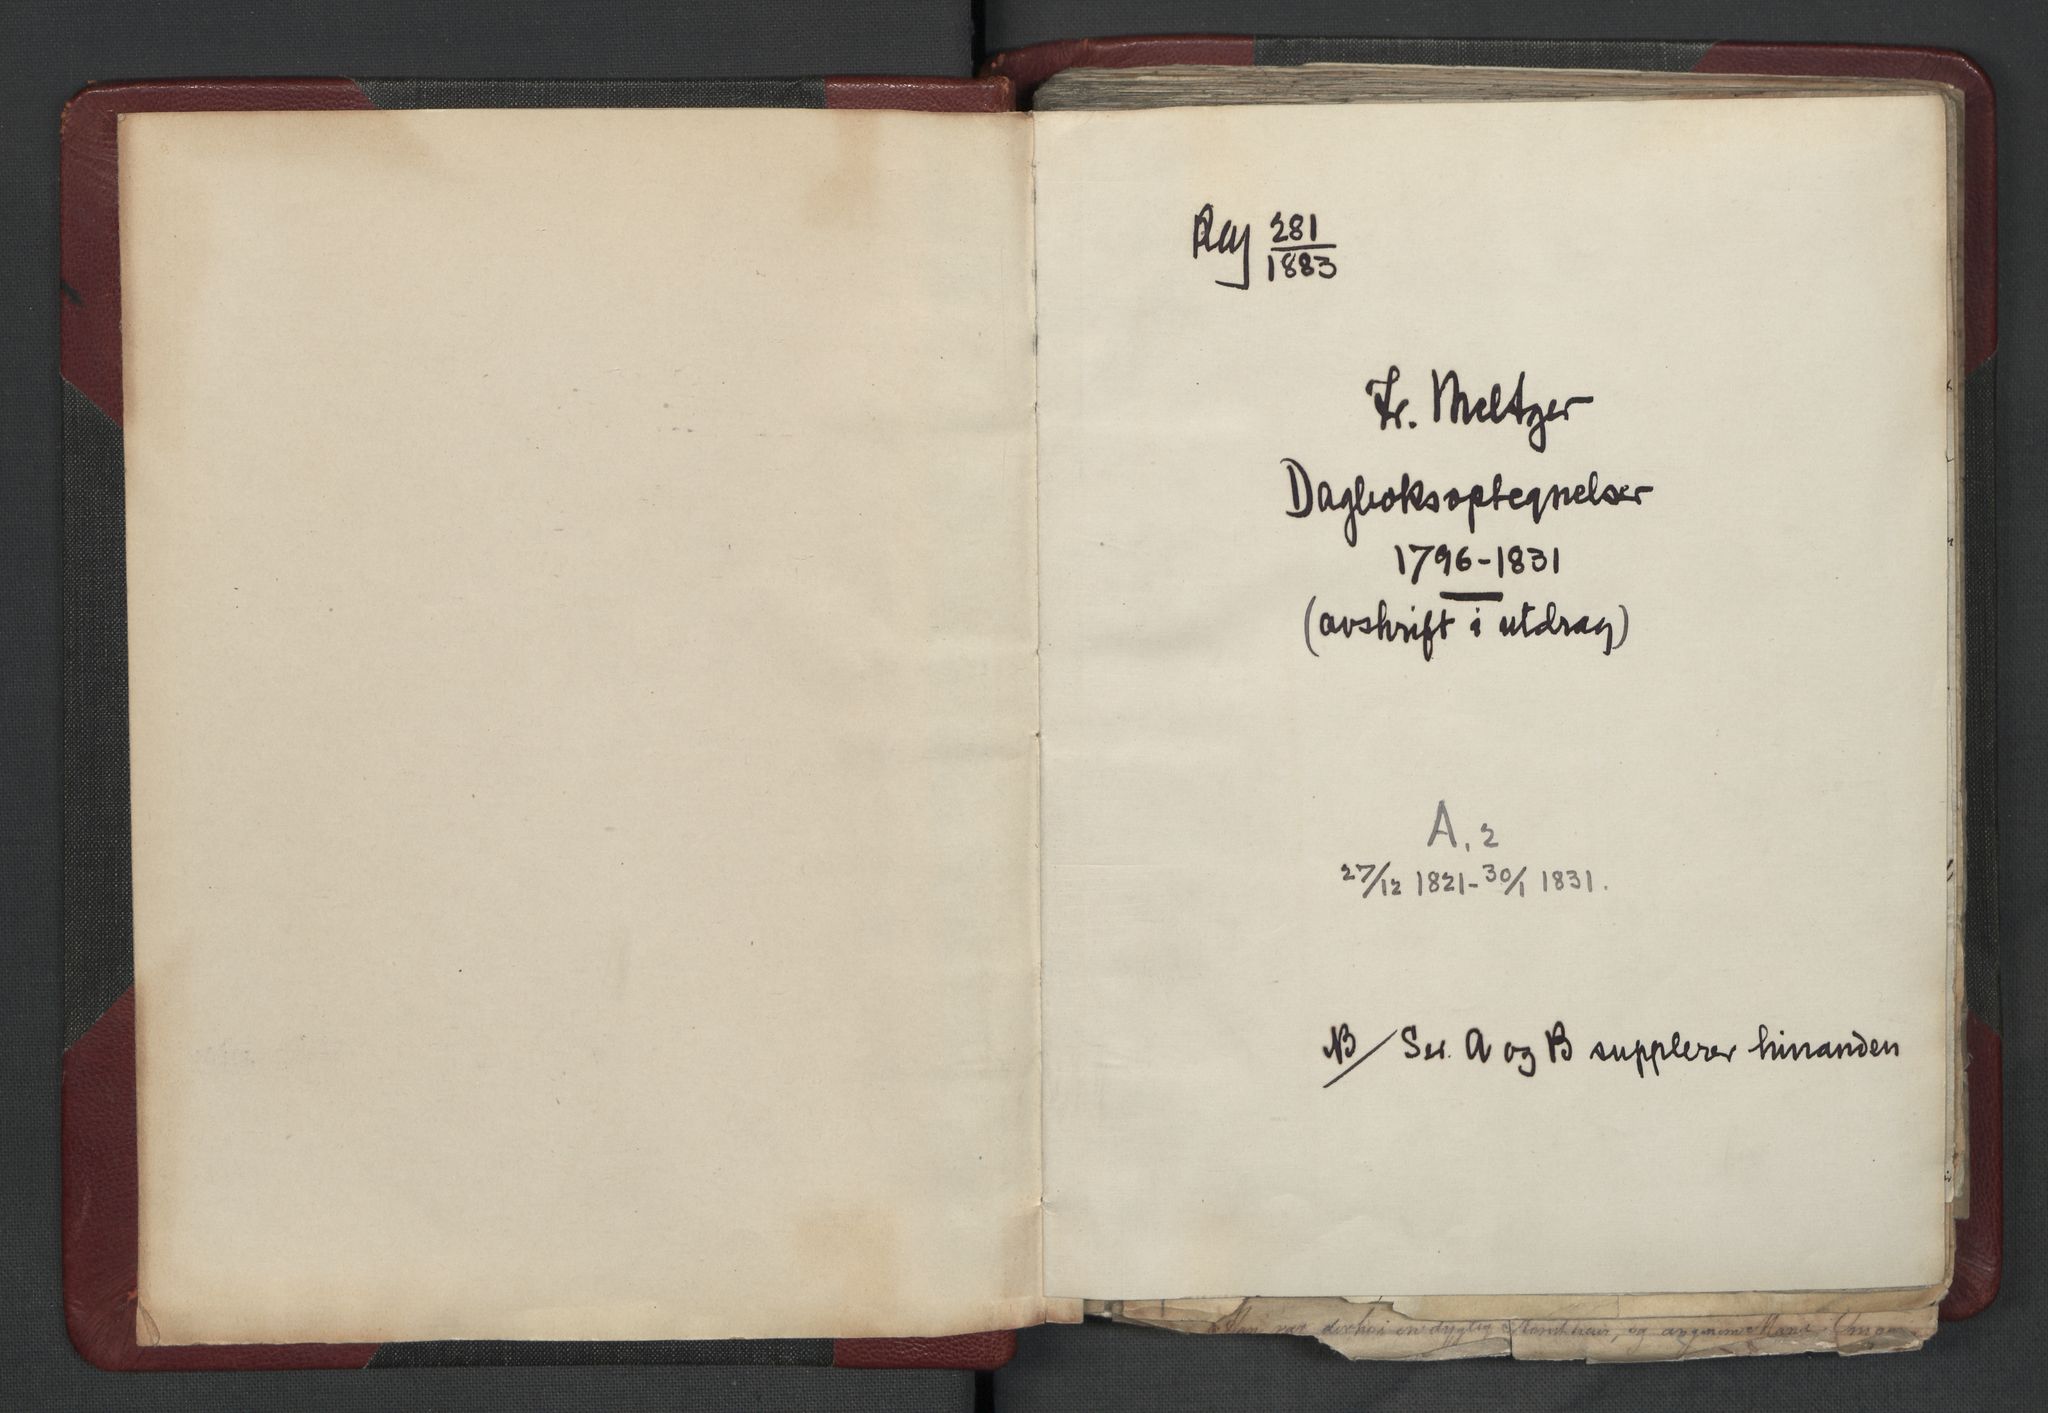 Reg 281/1883
Fr. Meltzer
Dagboksoptegnelser
1796-1831
(avskrift i utdrag)
A, 2
27/12 1821-30/1 1831.
NB/ Ser. A og B supplerer hinanden
var desuden en dygtig og